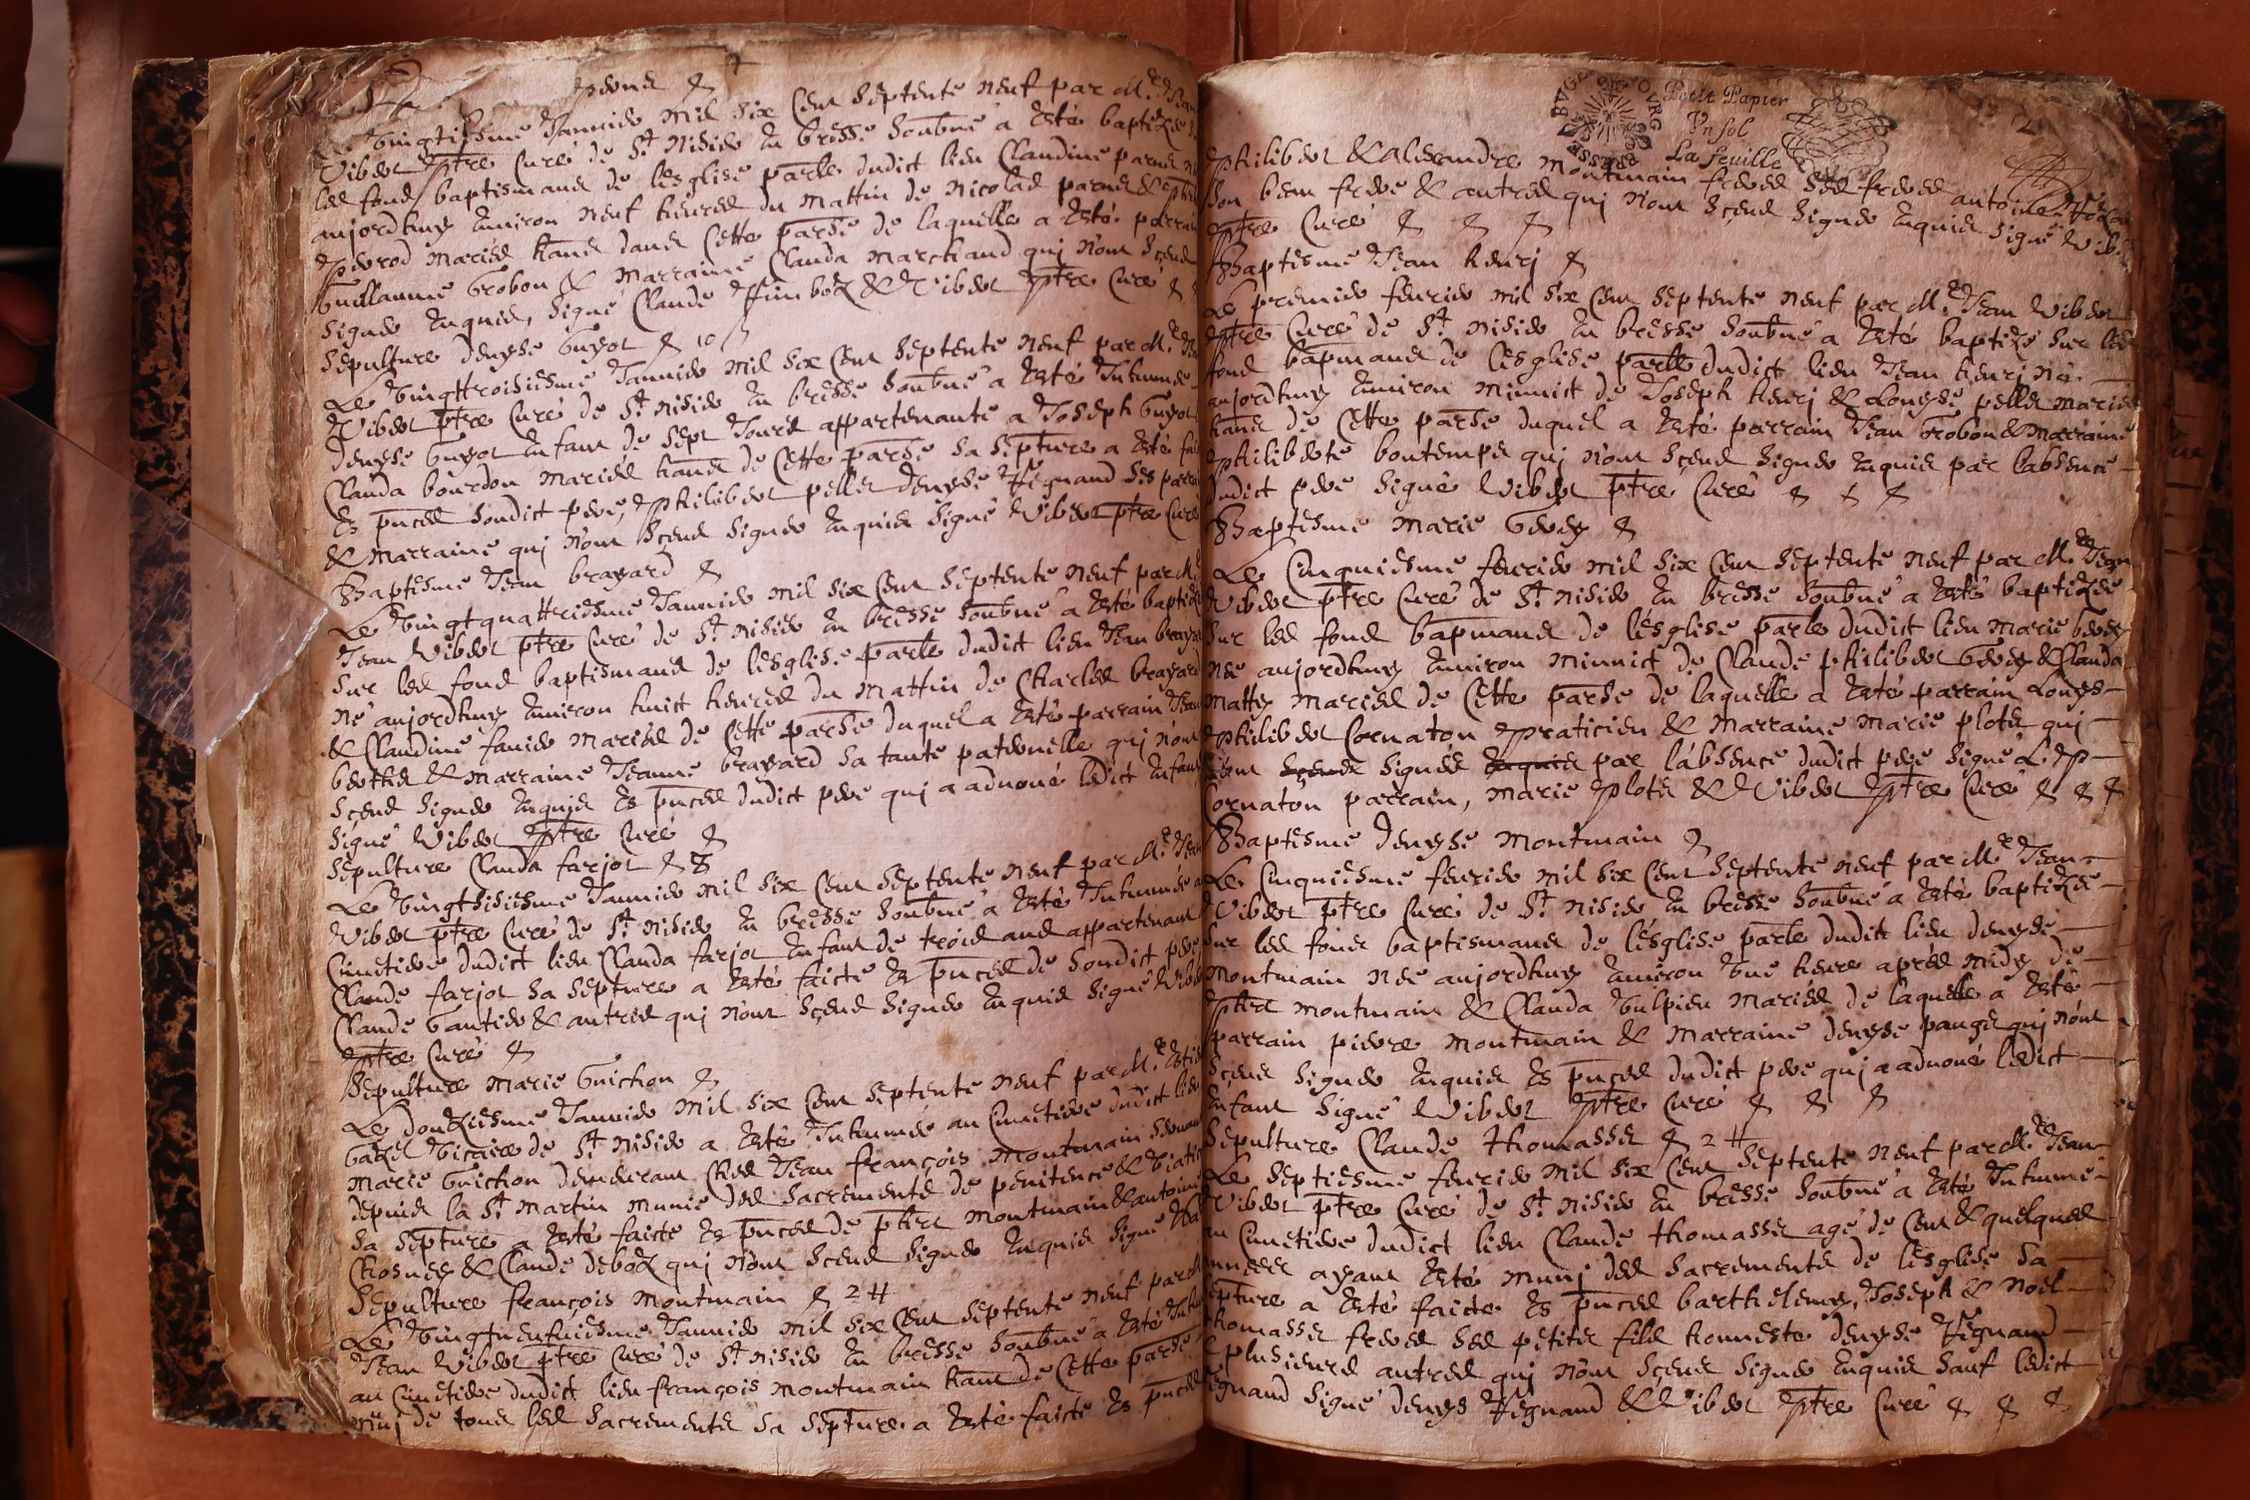 Le vingtiesme Janvier mil six cent septente neuf par Mre Jean
Vibert ptre curé de St Nisier en bresse soubné a esté baptizée
les fond baptismaux de lesglise parle dudict lieu Claudine
aujordhuy environ neuf heures du mattin de nicolas
mariés hans dans cette parse de laquelle a esté parrain
Guillaume Grobon & marraine Clauda Marchand qui n'ont sceus
signer enquis, signé Claude & Vibert ptre curé &
Sepulture denyse Guyot & 10
Le vingttroisiesme Janvier mil six cent septente neuf par Mre
Vibert ptre curé de St Nisier en bresse soubné a esté Inhumée
denyse Guyot enfant de sept Jours appartenante a Joseph Guyot
Clauda bourdon mariés hans de cette parse sa septure a esté
Es pnces sondict pere, philibert pellet denyse ses parrain
& marraine qui n'ont sceus signer enquis signé Vibert ptre curé
Baptesme Jean brayard &
Le vingtquattriesme Janvier mil six cent septente neuf par
Jean Vibert ptre curé de St Nisier en bresse soubné a esté baptizé
sur les fond baptismaux de lesglise parle dudict lieu Jean brayard
né aujordhuy environ huict heures du mattin de Charles brayard
& Claudine favier mariés de cette parse duquel a esté parrain Jean
berthet & marraine Jeanne brayard sa tante paternelle qui n'ont
sceus signer enquis Es pnces dudict pere qui a advoué ledict enfant
signé Vibert ptre curé &
Sepulture Clauda farjot & 8
Le vingtsisiesme Janvier mil six cent septente neuf par Mre Jean
Vibert ptre curé de St Nisier en bresse soubné a esté Inhumée
Cimetiere dudict lieu Clauda farjot enfant de trois ans appartenant
Claude farjot sa septure a esté faicte Es pnces de sondict pere
Claude Gautier & autres qui n'ont sceus signer enquis signé
ptre curé &
Sepulture Marie Guichon &
Le douziesme Janvier mil six cent septente neuf par Mre
vicaire de St Nisier a esté Inhumée au Cimetiere dudict lieu
Marie Guichon demeurant ches Jean françois Montmain
depuis la St Martin munie des sacrements de penitence & viatique
sa septure a esté faicte Es pnces de Montmain & antoine
& Claude qui n'ont sceus signer enquis signé
Sepulture françois Montmain & 2
Le vingtneufuiesme Janvier mil six cent septente neuf par
Jean Vibert ptre curé de St Nisier en bresse soubné a esté
au Cimetiere dudict lieu françois Montmain hant de cette parse
muni de tous les sacrements sa septure a esté faicte Es pnces
Petit Papier
Vn sol
La feuille
2
philibert & Alexandre Montmain freres ses freres antoine
son beau frere & autres qui n'ont sceus signer enquis signé
ptre curé & & &
Baptesme Jean henrj &
Le premier fevrier mil six cent septente neuf par Mre Jean Vibert
ptre curé de St Nisier en bresse soubné a esté baptizé sur les
fond bapmaux de lesglise parle dudict lieu Jean henrj né
aujordhuy environ minuict de Joseph henrj & Louyse pellet mariés
hans de cette parse duquel a esté parrain Jean Grobon & Marraine
philiberte bontemps qui n'ont sceus signer enquis par labsence
dudict pere signé Vibert ptre curé & & &
Baptesme Marie &
Le cinquiesme fevrier mil six cent septente neuf par Mre Jean
Vibert ptre curé de St Nisier en bresse soubné a esté baptizée
sur les fond bapmaux de lesglise parle dudict lieu Marie
née aujordhuy environ minuict de Claude philibert & Clauda
mariés de cette parse de laquelle a esté parrain Louys
philibert Cornaton praticien & Marraine Marie plotet qui
par l'absence dudict pere signé L. P.
Cornaton parrain, Marie plotet & Vibert ptre curé & & &
Baptesme denyse Montmain &
Le cinquiesme fevrier mil six cent septente neuf par Mre Jean
Vibert ptre curé de St Nisier en bresse soubné a esté baptizée
sur les fond baptismaux de lesglise parle dudict lieu denyse
Montmain née aujordhuy environ une heure apres midy de
Montmain & Clauda Vulpien mariés de laquelle a esté
parrain pierre Montmain & Marraine denyse qui n'ont
sceus signer enquis Es pnces dudict pere qui a advoué ledict
enfant signé Vibert ptre curé & & &
Sepulture Claude Thomasset & 2
Le septiesme fevrier mil six cent septente neuf par Mre Jean
Vibert ptre curé de St Nisier en bresse soubné a esté Inhumé
au Cimetiere dudict lieu Claude Thomasset agé de cent & quelques
années ayant esté munj des sacrements de lesglise sa
septure a esté faicte Es pnces barthelemy, Joseph & Noel
Thomasset freres ses petits fils honneste denyse
& plusieurs autres qui n'ont sceus signer enquis sauf ledict
signé denys & Vibert ptre curé & & &